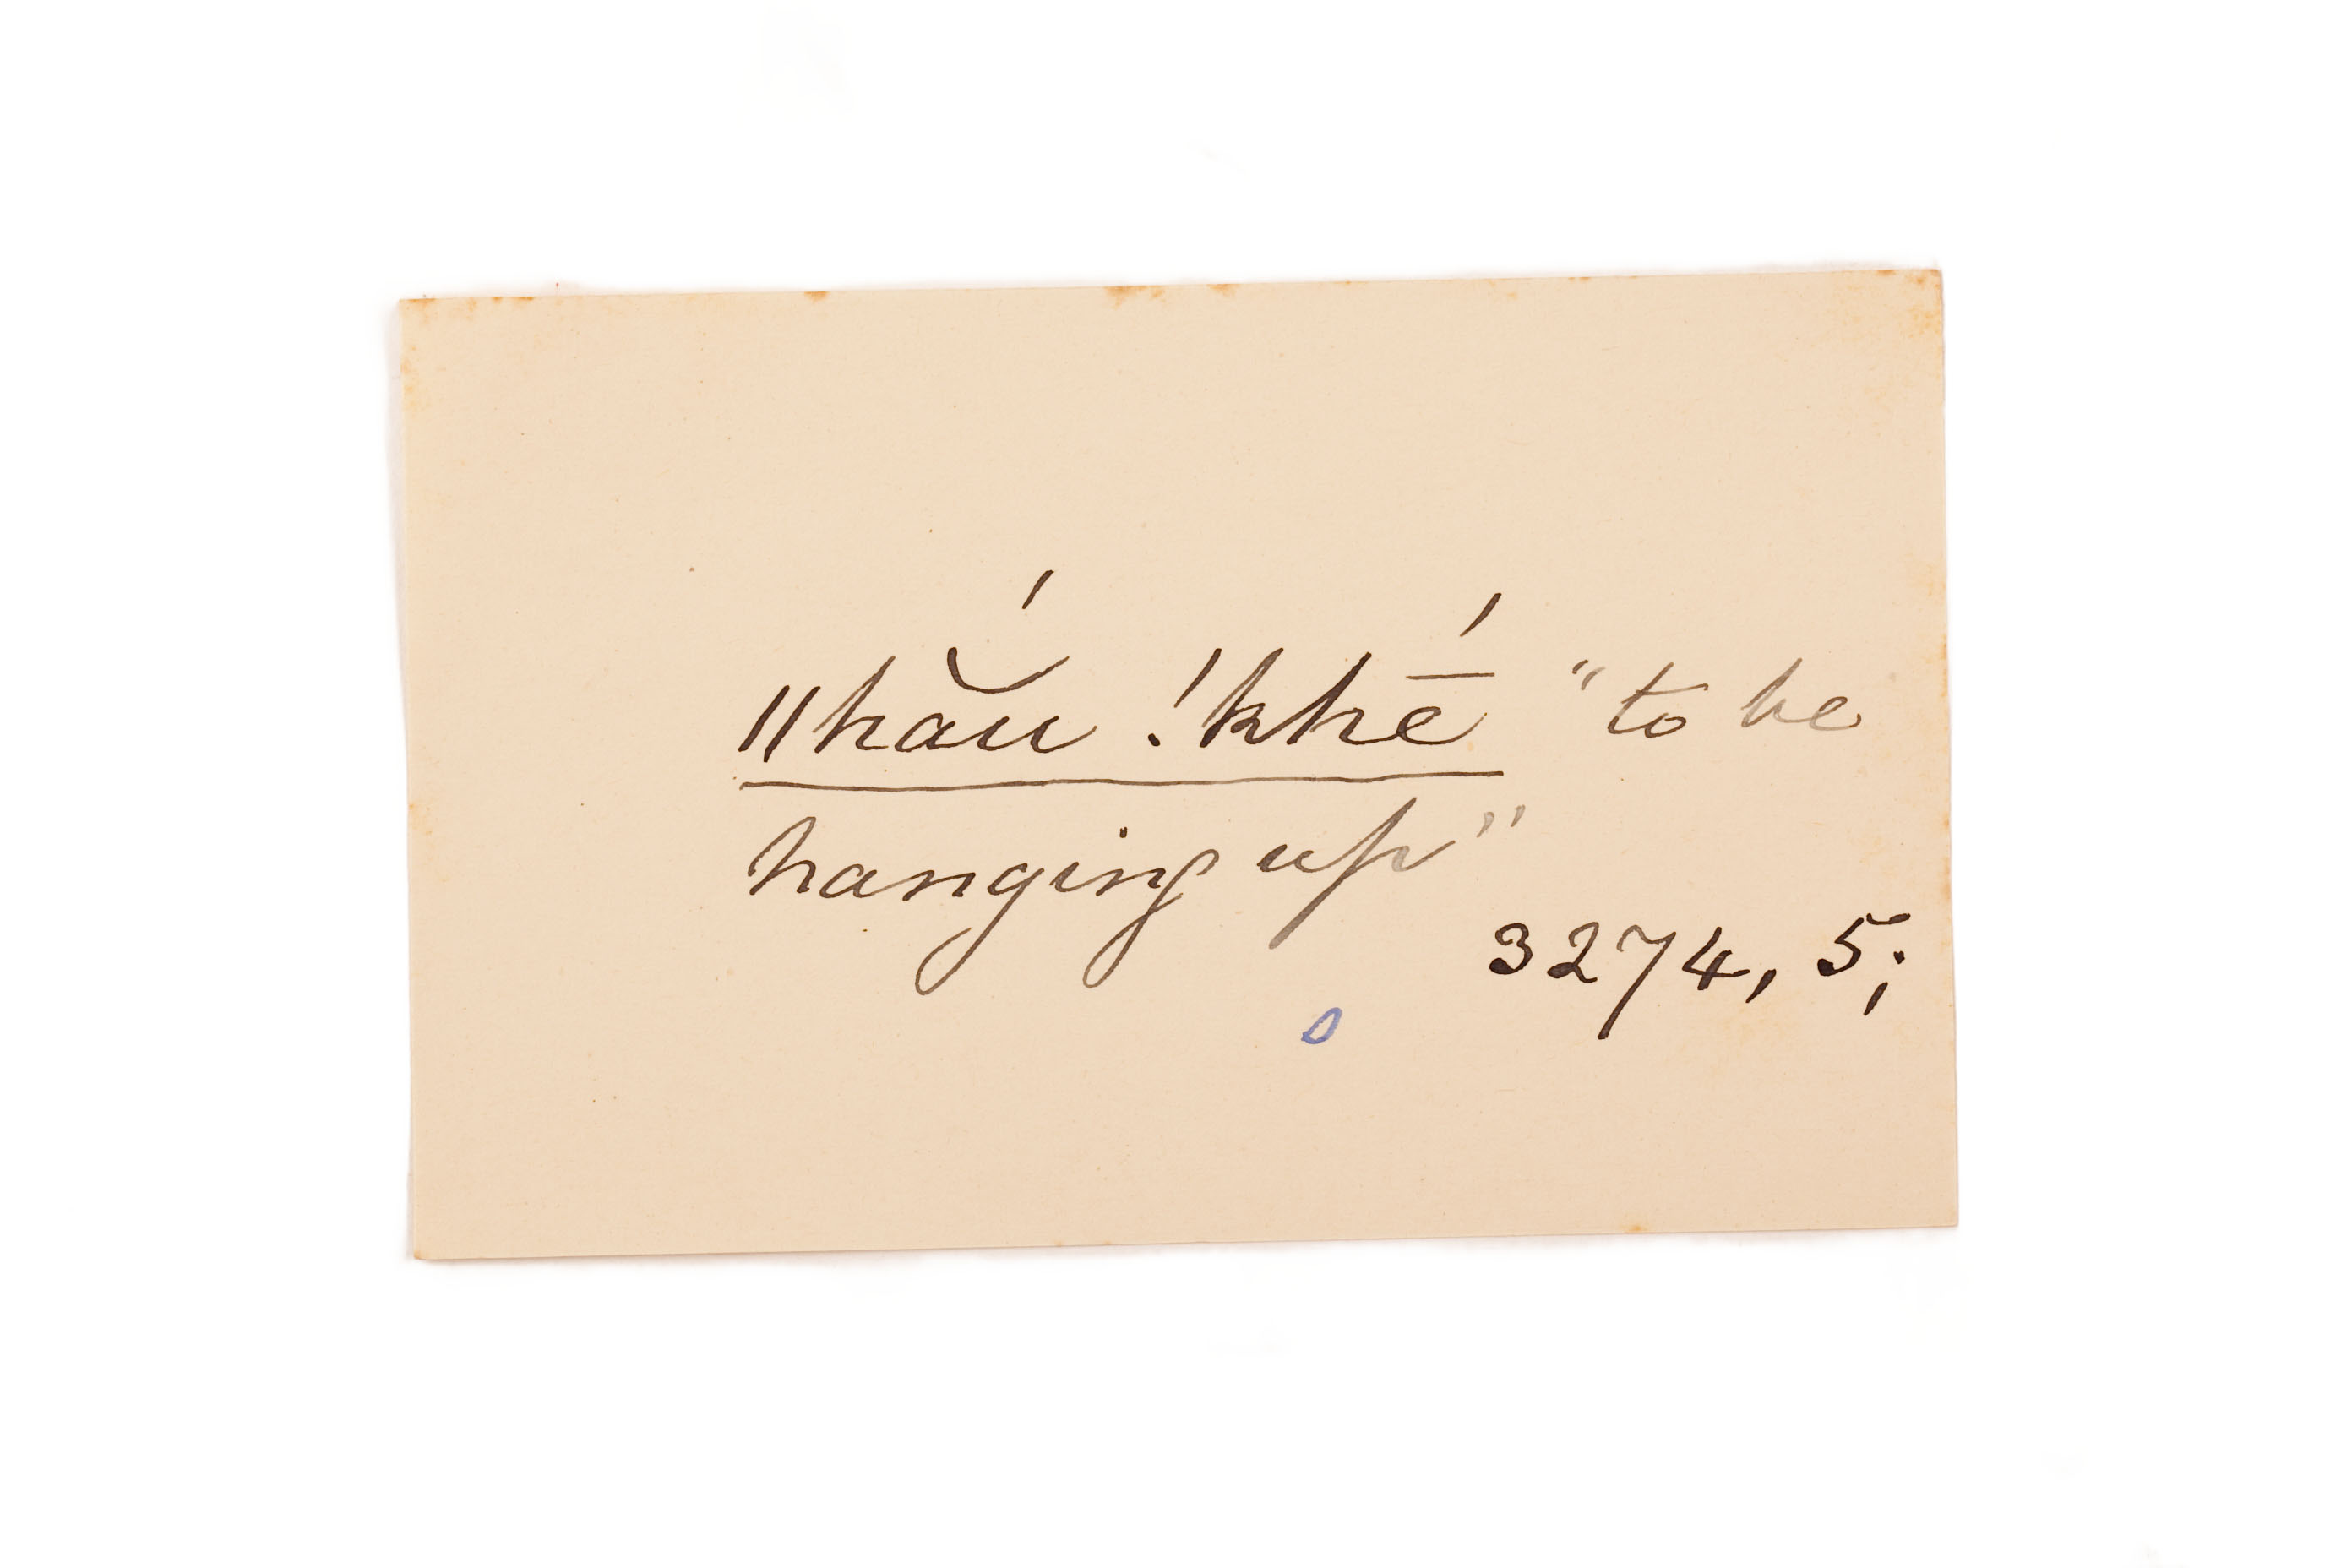 ǁhắu !khḗ "to be
hanging up"
3274, 5;